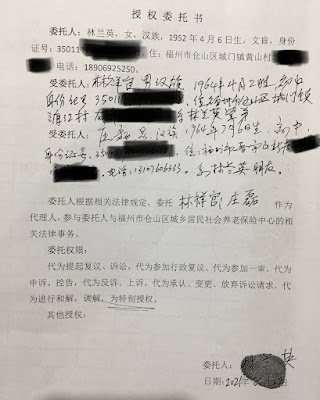 授 权 委 托 书
委托人：林兰英，女，汉族，1952 年 4 月 6 日生，文盲，身份
证号：35011 住：福州市仓山区城门镇黄山村
电话：18906925250。
受委托人：林祥官 男 汉族，1964年4月2日生，初中
身份证号：35011 住：福州市仓山区城门镇
林兰英
受委托人：庄磊 男 汉族，1964年7月6日生，高中，
身份证号：350
电话：林兰英朋友。
委托人根据相关法律规定，委托 林祥官，庄磊 作为
代理人，参与委托人与福州市仓山区城乡居民社会养老保险中心的相
关法律事务。
委托权限：
代为提起复议、诉讼，代为参加行政复议、代为参加一审、代为
申诉、控告，代为反诉、上诉，代为承认、变更、放弃诉讼请求、代
为进行和解，调解，为特别授权。
其他授权：
委托人：林兰英
日期：2021年